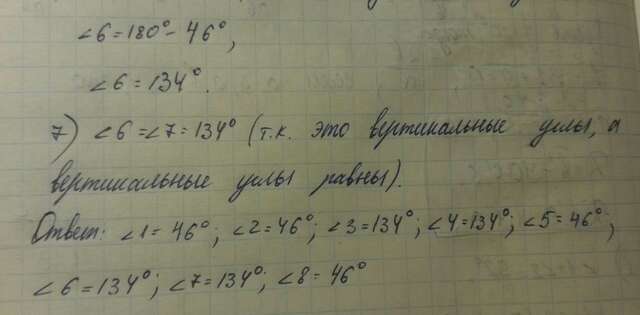 ∠6=180°-46°,
∠6=134°.
7) ∠6=∠7=134° (т.к. это вертикальные углы, а
вертикальные углы равны).
Ответ: ∠1=46°; ∠2=46°; ∠3=134°; ∠4=134°; ∠5=46°;
∠6=134°; ∠7=134°; ∠8=46°